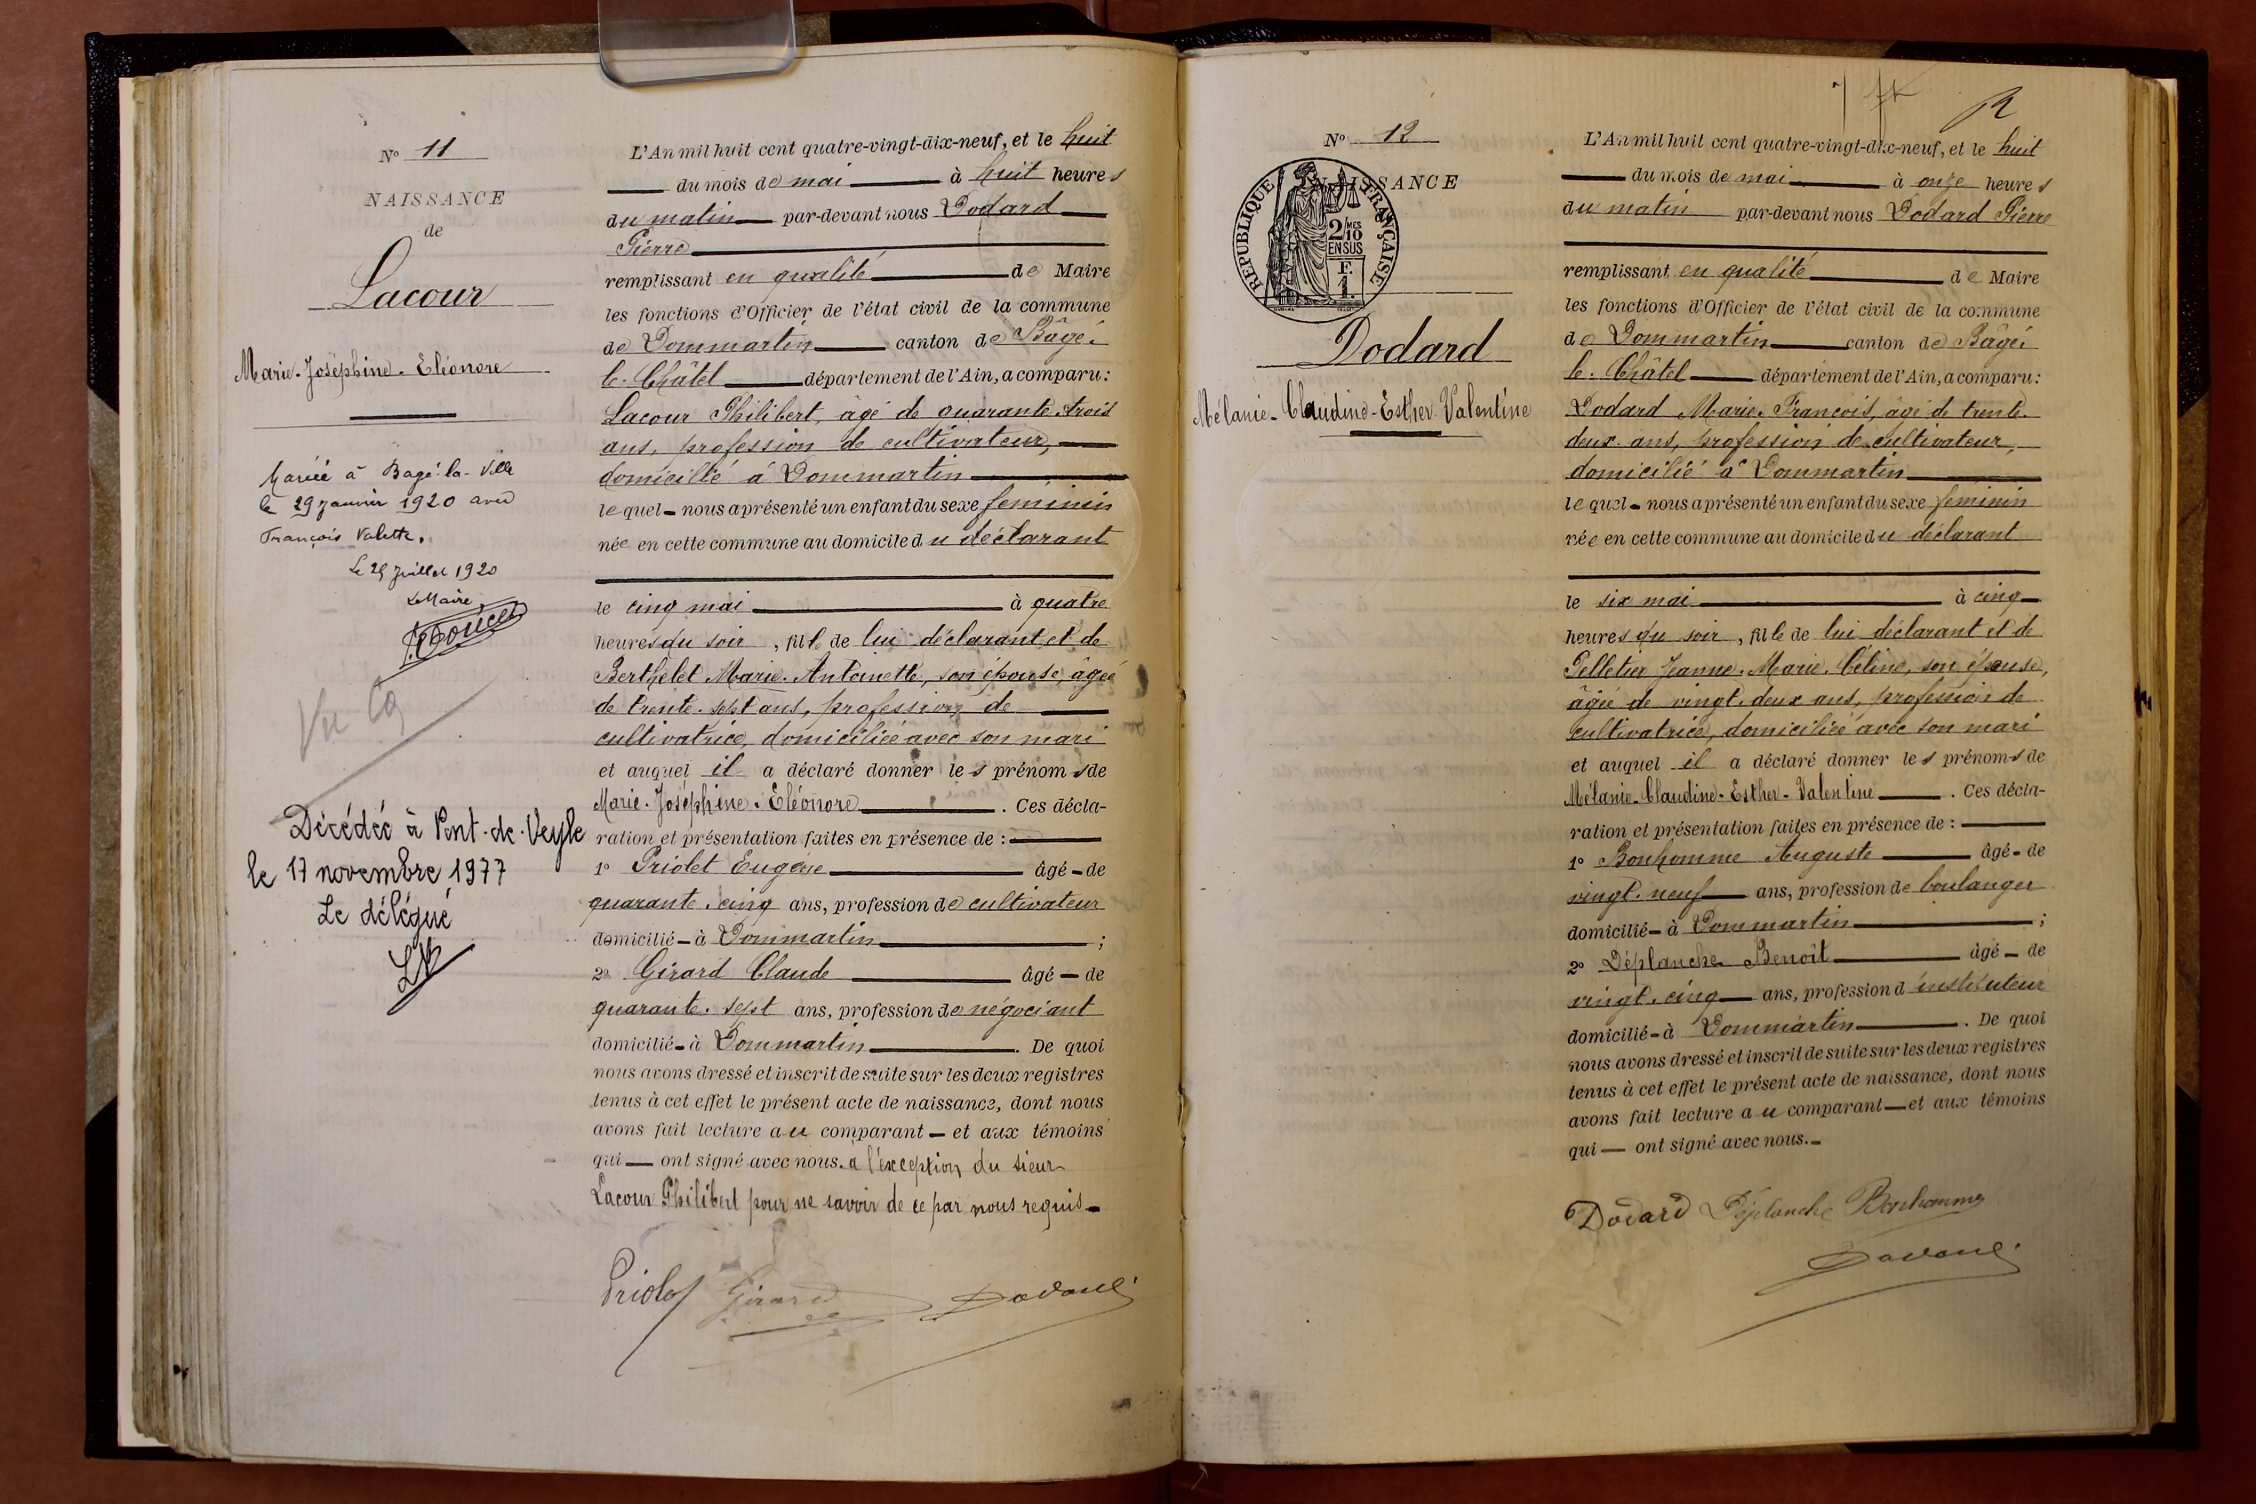 Nº 11
NAISSANCE
de
Lacour
Marie-Joséphine-Eléonore
Mariée à Bagé-la-Ville
le 29 janvier 1920 avec
François Valette.
Le 29 Juillet 1920
Le Maire
Vu
Décédée à Pont-de-Veyle
le 17 novembre 1977
Le délégué
L'An mil huit cent quatre-vingt-dix-neuf, et le huit
du mois de mai à huit heures
du matin par-devant nous Dodard
Pierre
remplissant en qualité de Maire
les fonctions d'Officier de l'état civil de la commune
de Dommartin canton de Bâgé-
le-Châtel département de l'Ain, a comparu:
Lacour Philibert, âgé de quarante-trois
ans, profession de cultivateur,
domicilié à Dommartin
lequel nous a présenté un enfant du sexe féminin
née en cette commune au domicile du déclarant
le cinq mai à quatre
heures du soir, fille de lui déclarant et de
Berthelet Marie-Antoinette, son épouse, âgée
de trente-sept ans, profession de
cultivatrice, domiciliée avec son mari
et auquel il a déclaré donner les prénoms de
Marie-Joséphine-Eléonore. Ces décla-
ration et présentation faites en présence de:
1º Priolet Eugène âgé de
quarante-cinq ans, profession de cultivateur
domicilié à Dommartin;
2º Girard Claude âgé de
quarante-sept ans, profession de négociant
domicilié à Dommartin. De quoi
nous avons dressé et inscrit de suite sur les deux registres
tenus à cet effet le présent acte de naissance, dont nous
avons fait lecture au comparant et aux témoins
qui ont signé avec nous. à l'exception du sieur
Lacour Philibert pour ne savoir de ce par nous requis-
Priolet Girard Dodard
Nº 12
NAISSANCE
REPUBLIQUE FRANÇAISE
2/10 MES
EN SUS
F.
1.
Dodard
Mélanie-Claudine-Esther-Valentine
L'An mil huit cent quatre-vingt-dix-neuf, et le huit
du mois de mai à onze heures
du matin par-devant nous Dodard Pierre
remplissant en qualité de Maire
les fonctions d'Officier de l'état civil de la commune
de Dommartin canton de Bâgé-
le-Châtel département de l'Ain, a comparu:
Dodard Marie-François, âgé de trente-
deux ans, profession de cultivateur,
domicilié à Dommartin
lequel nous a présenté un enfant du sexe féminin
née en cette commune au domicile du déclarant
le six mai à cinq
heures du soir, fille de lui déclarant et de
Pelletier Jeanne-Marie-Céline, son épouse,
âgée de vingt-deux ans, profession de
cultivatrice, domiciliée avec son mari
et auquel il a déclaré donner les prénoms de
Mélanie-Claudine-Esther-Valentine. Ces décla-
ration et présentation faites en présence de:
1º Bonhomme Auguste âgé de
vingt-neuf ans, profession de boulanger
domicilié à Dommartin;
2º Déplanche Benoît âgé de
vingt-cinq ans, profession d'instituteur
domicilié à Dommartin. De quoi
nous avons dressé et inscrit de suite sur les deux registres
tenus à cet effet le présent acte de naissance, dont nous
avons fait lecture au comparant et aux témoins
qui ont signé avec nous.
Dodard Déplanche Bonhomme
Dodard